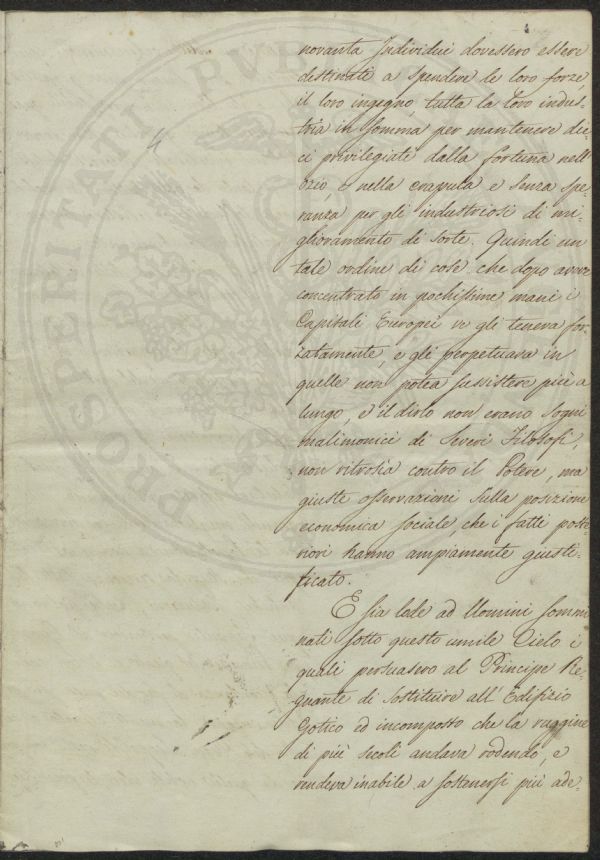 novanta Individui dovessero essere
destinati a spendere le loro forze,
il loro ingegno, tutta la loro indus=
tria in somma per mantenere die=
ci privilegiati dalla fortuna nell'
ozio, e nella crapula e senza spe=
ranza per gli industriosi di mi=
glioramento di sorte. Quindi un
tale ordine di cose che dopo avere
concentrato in pochissime mani i
Capitali Europei ve gli teneva for=
zatamente, e gli perpetuava in
quelle non potea sussistere più a
lungo, e il dirlo non erano sogni
malinconici di Severi Filosofi,
non ritrosia contro il Potere, ma
giuste osservazioni sulla posizione
economica sociale che i fatti poste=
riori hanno ampiamente giusti=
ficato.
E sia lode ad Uomini sommi
nati sotto questo umile Cielo i
quali persuasero al Principe Re=
gnante di sostituire all' Edifizio
Gotico ed incomposto che la ruggine
di più secoli andava rodendo, e
rendeva inabile a sostenersi più ade=
PROSPERITATI PUBLI